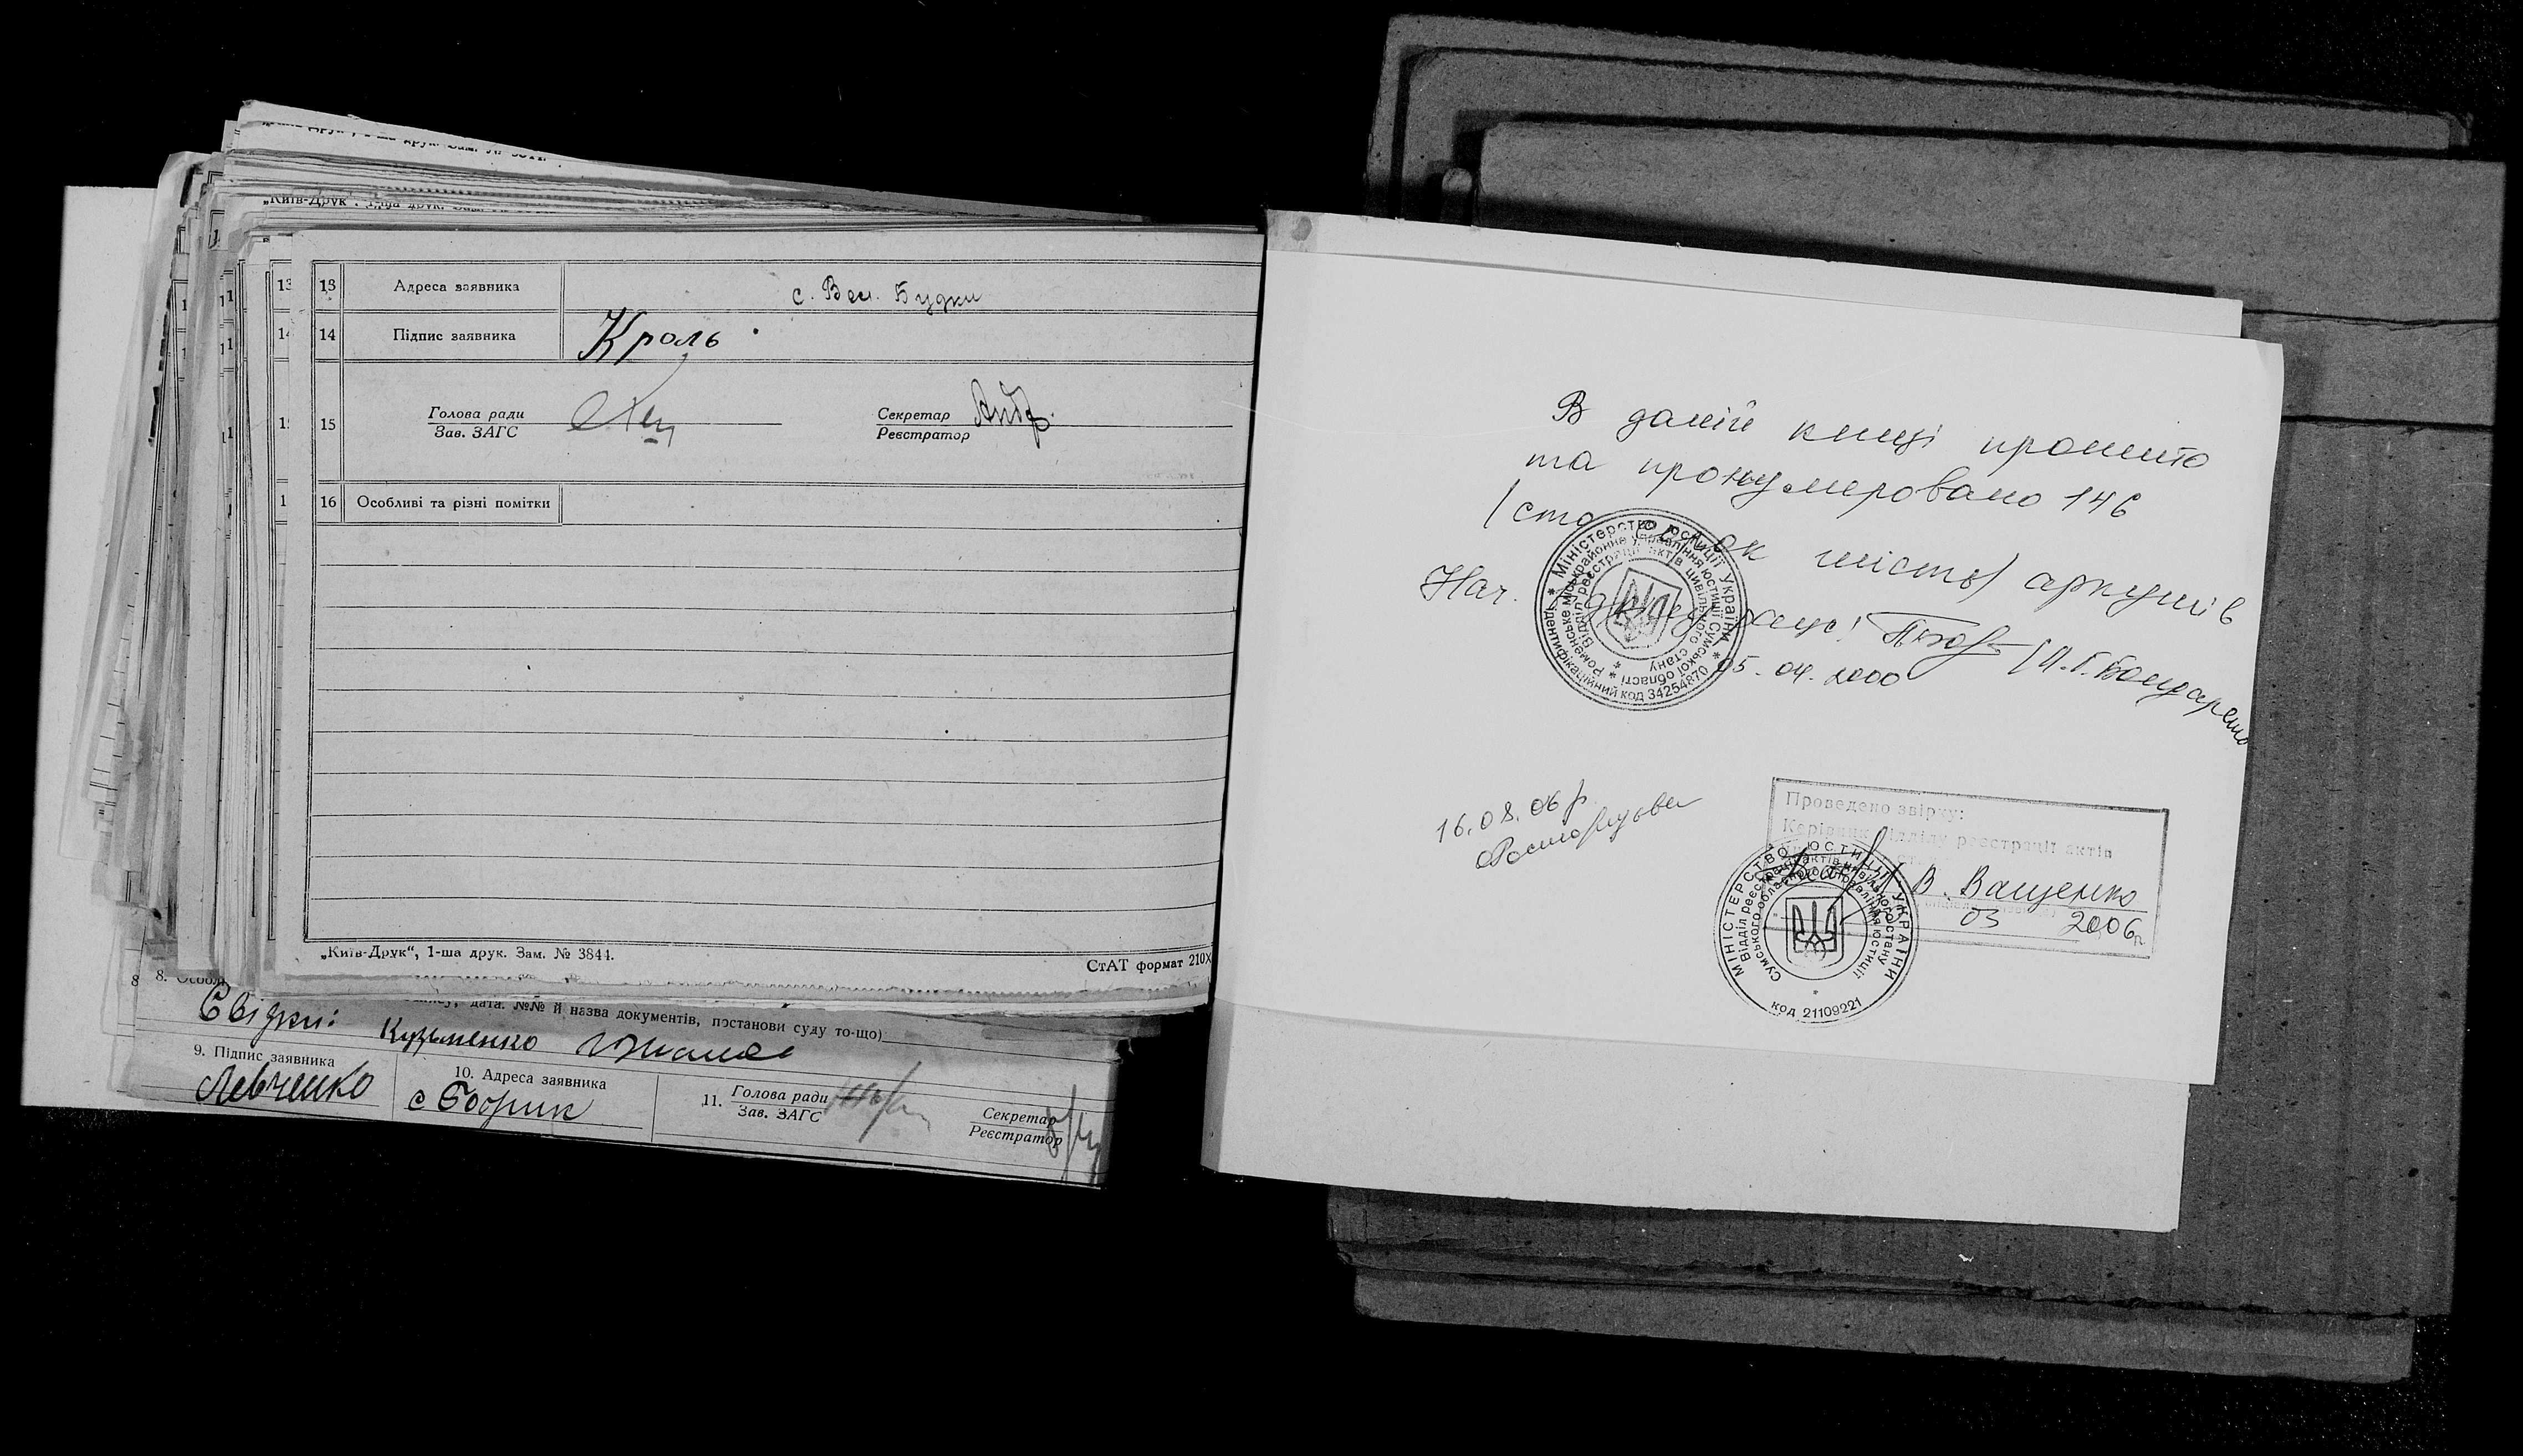 „Київ-Друк". 1-ша друк.
13 Адреса заявника с. Вел. Будки
14 Підпис заявника Кроль
15 Голова ради Секретар
Зав. ЗАГС Реєстратор
16 Особливі та різні помітки
„Київ-Друк“, 1-ша друк. Зам. № 3844. СтАТ формат 210X
дата. №№ й назва документів, постанови суду то-що)
Свідки: Кузьменко
9. Підпис заявника
Левченко
10. Адреса заявника
с Бобрик
11. Голова ради Секретар
Зав. ЗАГС Реєстратор
В даній книзі прошито
та пронумеровано 146
/сто сорок шість/ аркушів
Нач. відділу рацс: /П.Г. Бондаренко
05.04.2000
Міністерство юстиції України * Ідентифікаційний код 34254870 *
Роменське міськрайонне управління юстиції Сумської області *
Відділ реєстрації актів цивільного стану *
16.08.06 р.
Проведено звірку:
Керівник відділу реєстрації актів
В. Ващенко
03 2006р.
МІНІСТЕРСТВО ЮСТИЦІЇ УКРАЇНИ
Відділ реєстрації актів цивільного стану
Сумського обласного управління юстиції
код 21109221